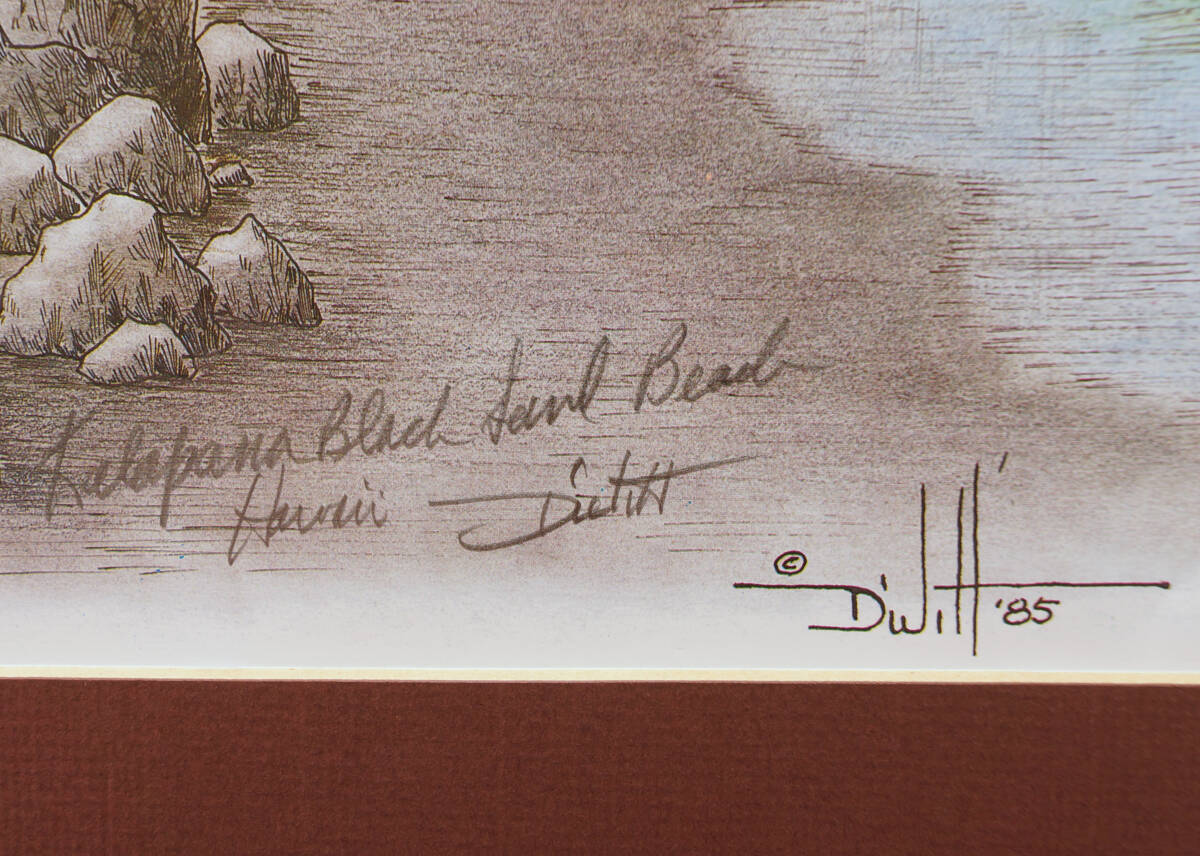 Kalapana Black Sand Beach
Hawaii D'Witt
© D'Witt '85